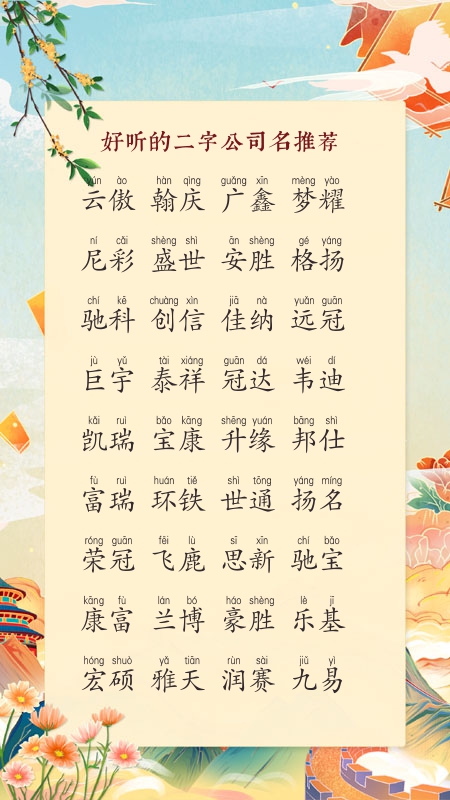 好听的二字公司名推荐
yún ào hàn qìng guǎng xīn mèng yào
云傲 翰庆 广鑫 梦耀
ní cǎi shèng shì ān shèng gé yáng
尼彩 盛世 安胜 格扬
chí kē chuàng xìn jiā nà yuǎn guān
驰科 创信 佳纳 远冠
jù yǔ tài xiáng guān dá wéi dí
巨宇 泰祥 冠达 韦迪
kǎi ruì bǎo kāng shēng yuán bāng shì
凯瑞 宝康 升缘 邦仕
fù ruì huán tiě shì tōng yáng míng
富瑞 环铁 世通 扬名
róng guān fēi lù sī xīn chí bǎo
荣冠 飞鹿 思新 驰宝
kāng fù lán bó háo shèng lè jī
康富 兰博 豪胜 乐基
hóng shuò yǎ tiān rùn sài jiǔ yì
宏硕 雅天 润赛 九易